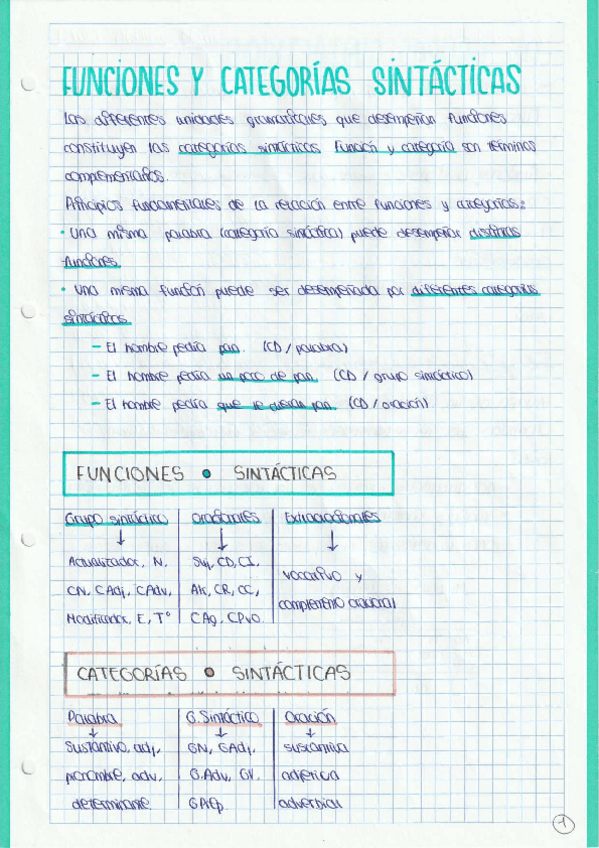 FUNCIONES Y CATEGORÍAS SINTÁCTICAS
Las diferentes unidades gramaticales que desempeñan funciones
constituyen las categorías sintácticas. Función y categoría son términos
complementarios.
Principios fundamentales de la relación entre funciones y categorías:
· Una misma palabra (categoría sintáctica) puede desempeñar distintas
funciones.
· Una misma función puede ser desempeñada por diferentes categorías
sintácticas.
– El hombre pedía pan. (CD / palabra)
– El hombre pedía un poco de pan. (CD / grupo sintáctico)
– El hombre pedía que le dieran pan. (CD / oración)
FUNCIONES • SINTÁCTICAS
Grupo sintáctico | Oracionales | Extraoracionales
↓ ↓ ↓
Actualizador, N, | Suj, CD, CI,
vocativo y
CN, CAdj, CAdv, | Atr, CR, CC,
complemento oracional
Modificador, E, Tº | CAg, CPvo.
CATEGORÍAS • SINTÁCTICAS
Palabra | G. Sintáctico | Oración
↓ ↓ ↓
Sustantivo, adj, | GN, GAdj, | sustantiva
pronombre, adv, | G.Adv, GV, | adjetiva
determinante. | GPrep. | adverbial
1